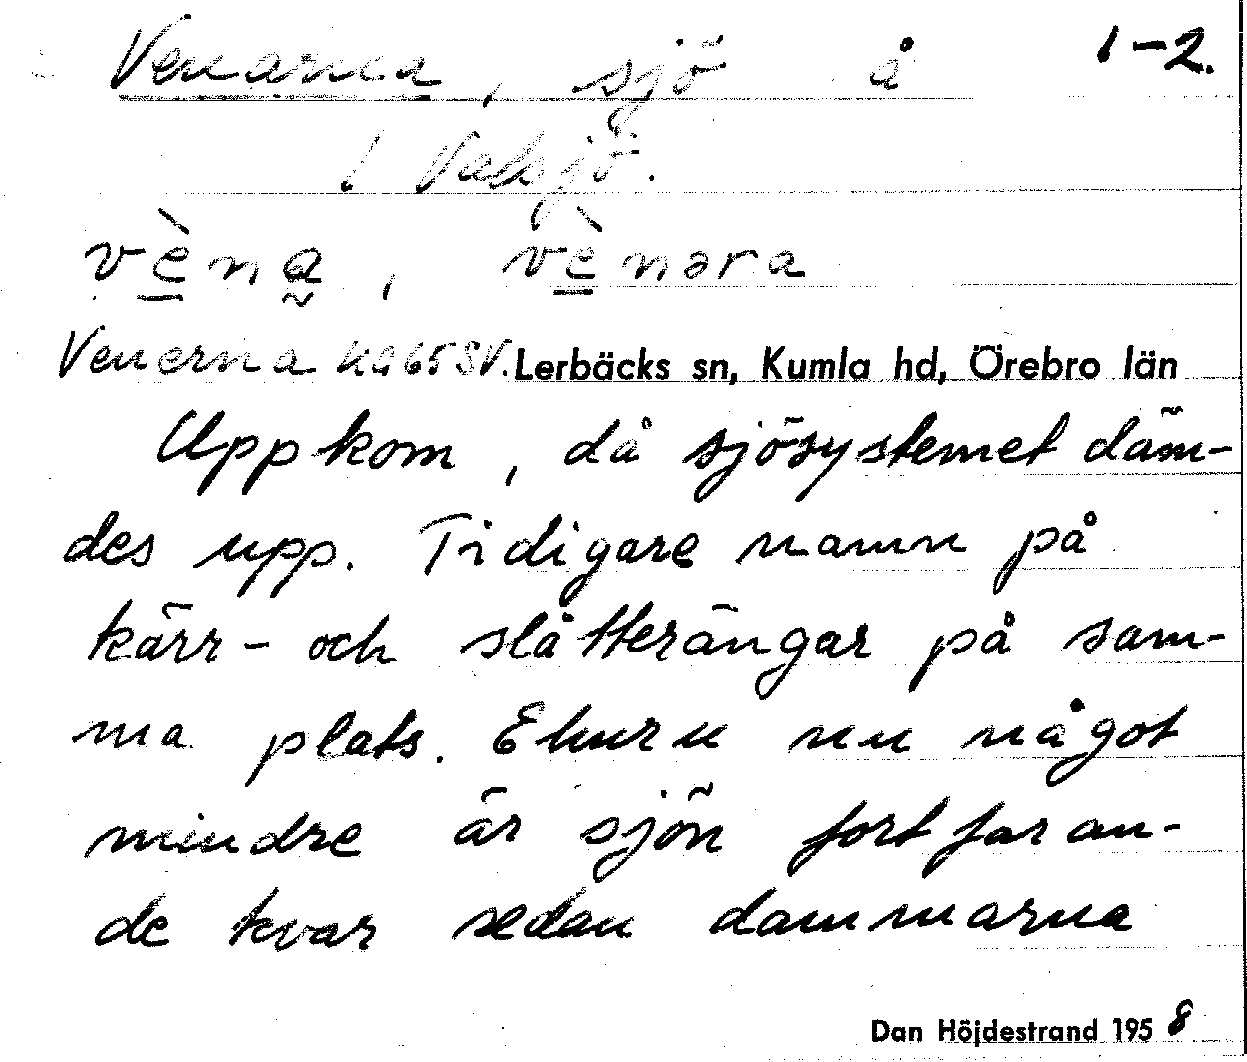 Venarna, sjö å 1-2.
i Valsjö.
vèna, vènəra
Venerna Ka 65 SV. Lerbäcks sn, Kumla hd, Örebro län
Uppkom, då sjösystemet däm-
des upp. Tidigare namn på
kärr- och slåtterängar på sam-
ma plats. Ehuru nu något
mindre är sjön fortfaran-
de kvar sedan dammarna
Dan Höjdestrand 1958